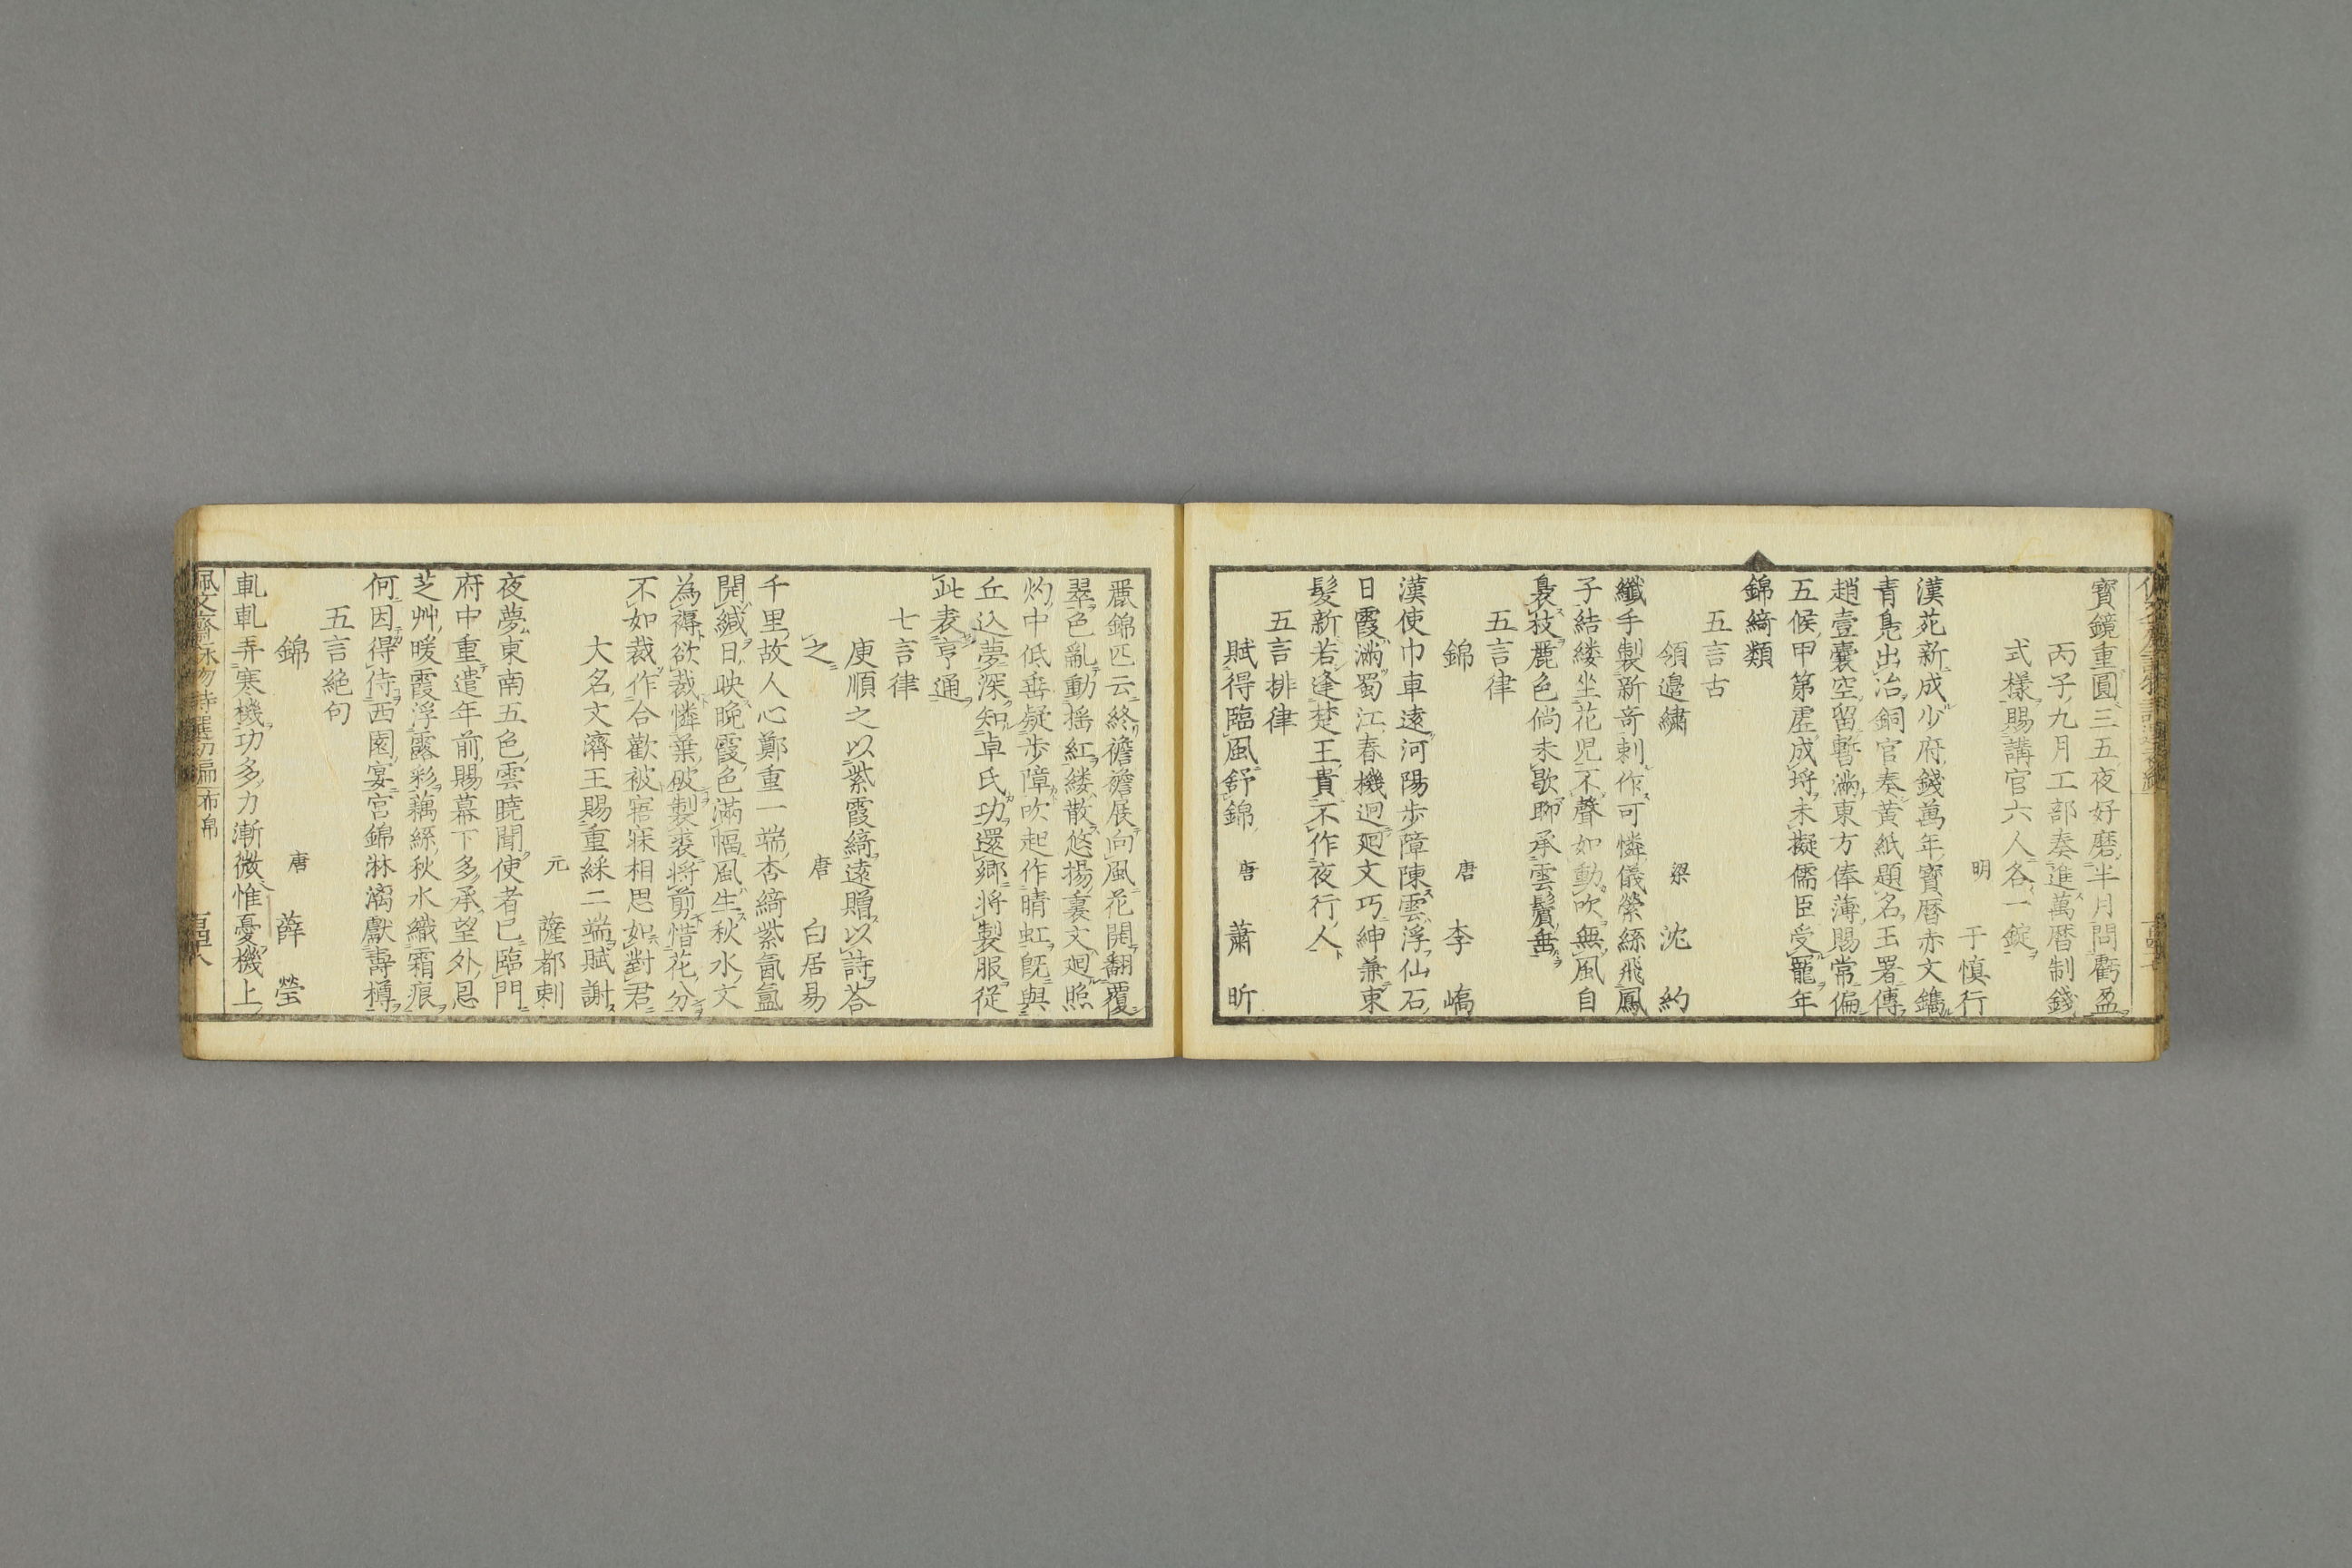 寳鏡重圓三五夜好磨半月問虧盈
丙子九月工部奏進萬曆制錢
式樣賜講官六人各一錠
明 于慎行
漢苑新成少府錢萬年寳曆赤文鐫
青鳧出冶銅官奏黄紙題名玉署傳
趙壹囊空留暫滿東方俸薄賜常偏
五候甲第虛成埒未擬儒臣受寵年
錦綺類
五言古
領邉繡 梁 沈約
纖手製新竒刺作可憐儀縈絲飛鳳
子結縷坐花児不聲如動吹無風自
裊枝麗色倘未歇聊承雲鬢垂
五言律
錦 唐 李嶠
漢使巾車逺河陽歩障陳雲浮仙石
日霞滿蜀江春機迥廻文巧紳兼束
髮新若逢楚王貴不作夜行人
五言排律
賦得臨風舒錦 唐 蕭昕
麗錦匹云終襜襜展向風花開翻覆
翠色亂動揺紅縷散悠揚裏文廻照
灼中低垂疑歩障吹起作晴虹旣與
丘込夢深知卓氏功還郷将製服從
此表亨通
七言律
庾順之以紫霞綺遠贈以詩荅
之 唐 白居易
千里故人心鄭重一端杏綺紫氤氳
開緘日映晩霞色滿幅風生秋水文
為褥欲裁憐葉破製裘将剪惜花分
不如裁作合歡被寤寐相思如對君
大名文濟王賜重綵二端賦謝
元 薩都剌
夜夢東南五色雲暁聞使者已臨門
府中重遣年前賜幕下多承望外恩
芝艸暖霞浮露彩藕絲秋水織霜痕
何因得侍西園宴宮錦淋漓獻壽樽
五言絶句
錦 唐 薛瑩
軋軋弄寒機功多力漸微惟憂機上